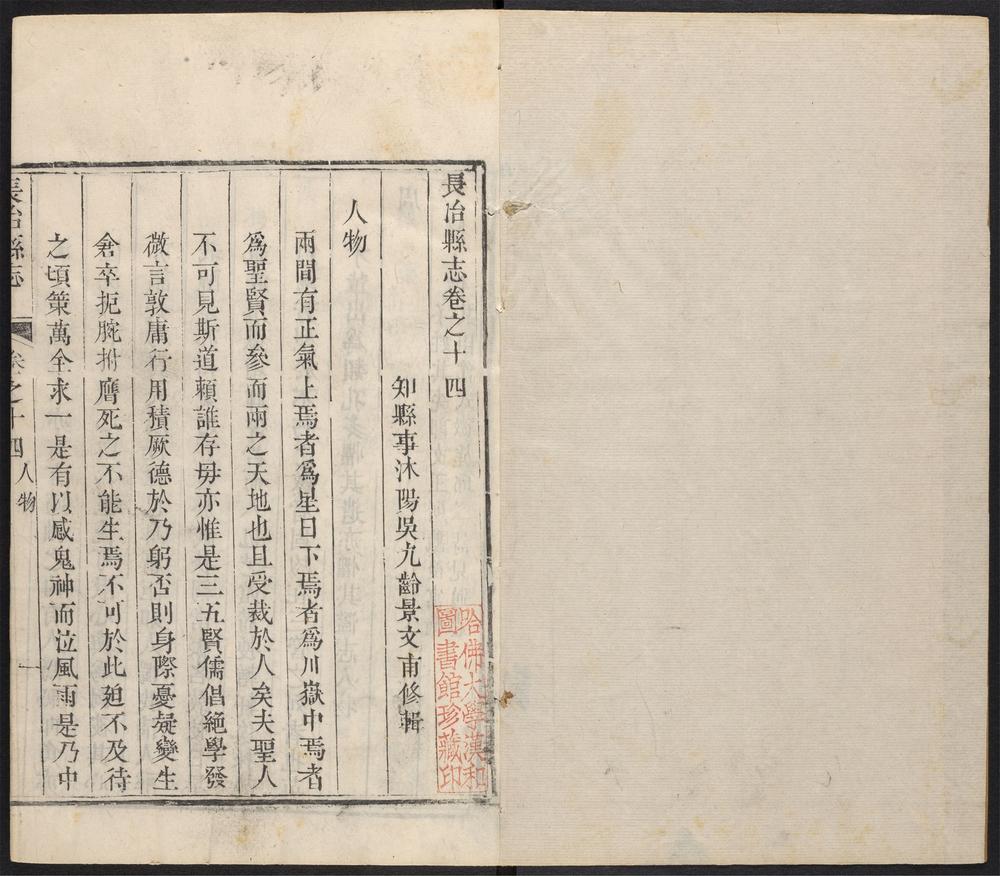 長治縣志卷之十四
知縣事沐陽吳九齡景文甫修輯
人物
兩間有正氣上焉者爲星日下焉者爲川嶽中焉者
爲聖賢而參而兩之天地也且受裁於人矣夫聖人
不可見斯道賴誰存毋亦惟是三五賢儒倡絕學發
微言敦庸行用積厥德於乃躬否則身際憂疑變生
倉卒扼腕拊膺死之不能生焉不可於此廹不及待
之頃策萬全求一是有以感鬼神而泣風雨是乃中
長治縣志
卷之十四
人物
一
哈佛大學漢和
圖書館珍藏印